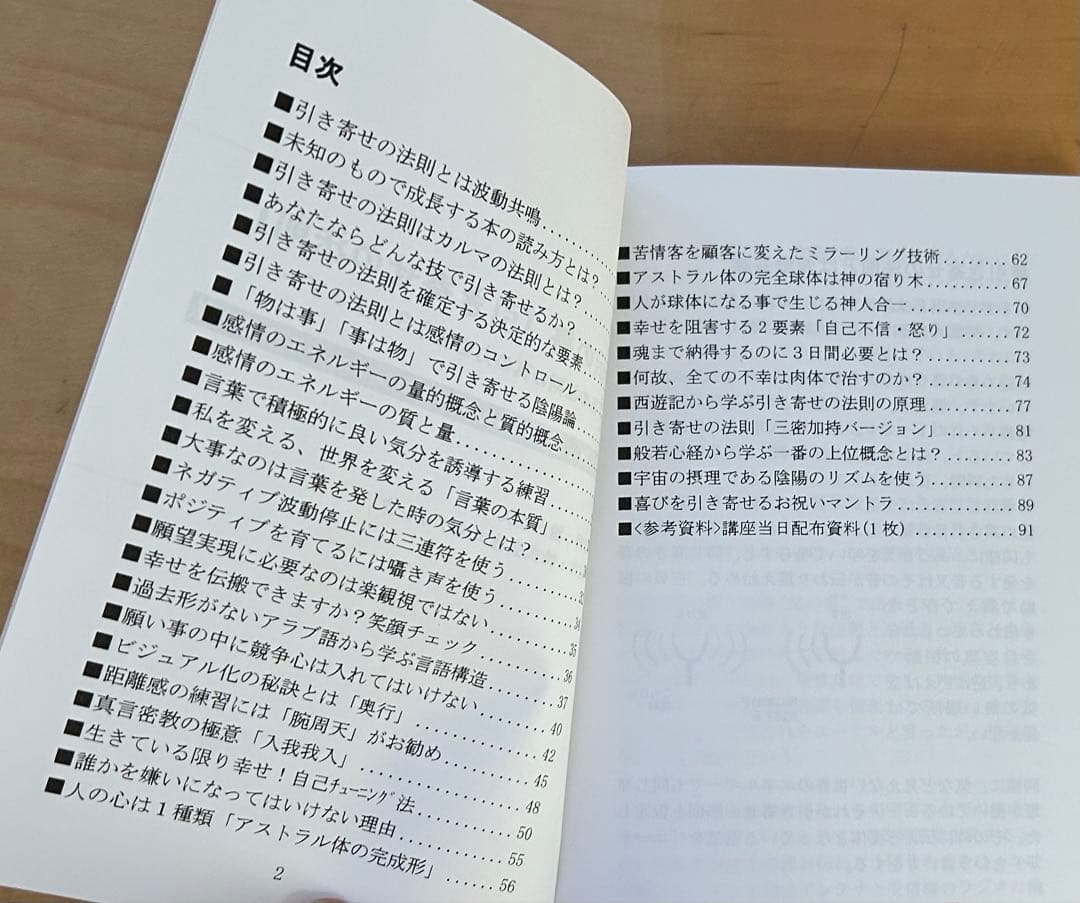 目次
■引き寄せの法則とは波動共鳴..........
■未知のもので成長する本の読み方とは?
■引き寄せの法則はカルマの法則とは?
■あなたならどんな技で引き寄せるか?
■引き寄せの法則を確定する決定的な要素
■引き寄せの法則とは感情のコントロール
■「物は事」「事は物」で引き寄せる陰陽論
■感情のエネルギーの量的概念と質的概念
■感情のエネルギーの質と量..........
■言葉で積極的に良い気分を誘導する練習
■私を変える、世界を変える「言葉の本質」
■大事なのは言葉を発した時の気分とは?
■ネガティブ波動停止には三連符を使う
■ポジティブを育てるには囁き声を使う
■願望実現に必要なのは楽観視ではない
■幸せを伝搬できますか?笑顔チェック......35
■過去形がないアラブ語から学ぶ言語構造...36
■願い事の中に競争心は入れてはいけない...37
■ビジュアル化の秘訣とは「奥行」..........40
■距離感の練習には「腕周天」がお勧め......42
■真言密教の極意「入我我入」..........45
■生きている限り幸せ!自己ﾁｭｰﾆﾝｸﾞ法......48
■誰かを嫌いになってはいけない理由......50
■人の心は1種類「アストラル体の完成形」......56
2
■苦情客を顧客に変えたミラーリング技術........62
■アストラル体の完全球体は神の宿り木..........67
■人が球体になる事で生じる神人合一............70
■幸せを阻害する2要素「自己不信・怒り」......72
■魂まで納得するのに3日間必要とは?..........73
■何故、全ての不幸は肉体で治すのか?..........74
■西遊記から学ぶ引き寄せの法則の原理..........77
■引き寄せの法則「三密加持バージョン」........81
■般若心経から学ぶ一番の上位概念とは?........83
■宇宙の摂理である陰陽のリズムを使う..........87
■喜びを引き寄せるお祝いマントラ..............89
■<参考資料>講座当日配布資料(1枚)............91